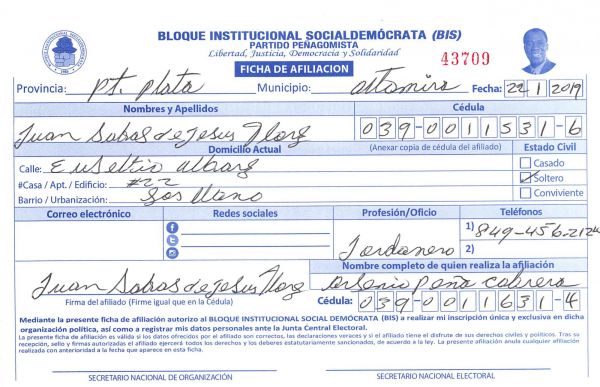 BLOQUE INSTITUCIONAL SOCIALDEMÓCRATA (BIS)
PARTIDO PEÑAGOMISTA
Libertad, Justicia, Democracia y Solidaridad
43709
FICHA DE AFILIACION
Provincia: Pt. Plata Municipio: Altamira Fecha: 22/1/2019
Nombres y Apellidos Cédula
Juan Sabas de Jesus 039-0011531-6
Domicilio Actual (Anexar copia de cédula del afiliado) Estado Civil
Calle: Casado
#Casa / Apt. / Edificio: #22 Soltero
Barrio / Urbanización: Conviviente
Correo electrónico Redes sociales Profesión/Oficio Teléfonos
1) 849-456-212
2)
Nombre completo de quien realiza la afiliación
Juan Sabas de Jesus Arsenio Peña Cabrera
Firma del afiliado (Firme igual que en la Cédula) Cédula: 039-0011631-4
Mediante la presente ficha de afiliación autorizo al BLOQUE INSTITUCIONAL SOCIAL DEMÓCRATA (BIS) a realizar mi inscripción única y exclusiva en dicha
organización política, así como a registrar mis datos personales ante la Junta Central Electoral.
La presente ficha de afiliación es válida si los datos ofrecidos por el afiliado son correctos, las declaraciones veraces y si el afiliado tiene el disfrute de sus derechos civiles y políticos. Tras su
recepción, sello y firmas autorizadas el afiliado ejercerá todos los derechos y los deberes estatutariamente sancionados, de acuerdo a la ley. La presente afiliación anula cualquier afiliación
realizada con anterioridad a la fecha que aparece en esta ficha.
SECRETARIO NACIONAL DE ORGANIZACIÓN SECRETARIO NACIONAL ELECTORAL